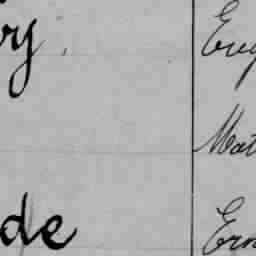 ry. Eug
Mat
de Ern